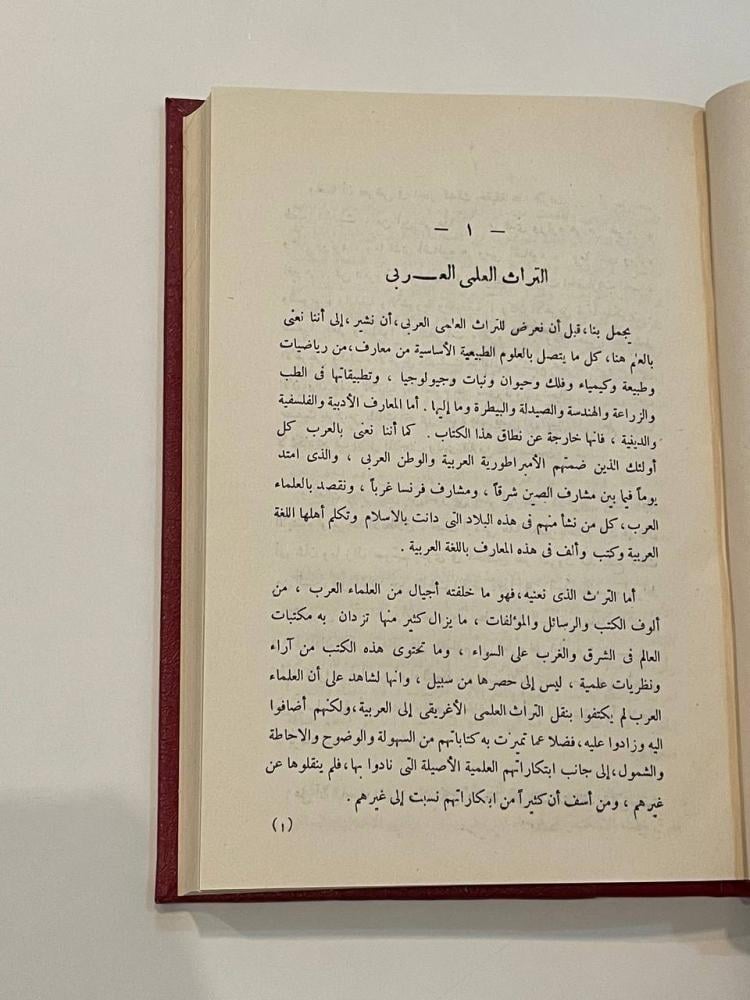 — ١ —
التراث العلمى العـــربى
يجمل بنا، قبل أن نعرض للتراث العلمى العربى، أن نشير، إلى أننا نعنى
بالعلم هنا، كل ما يتصل بالعلوم الطبيعية الأساسية من معارف، من رياضيات
وطبيعة وكيمياء وفلك وحيوان ونبات وجيولوجيا ، وتطبيقاتها فى الطب
والزراعة والهندسة والصيدلة والبيطرة وما إليها . أما المعارف الأدبية والفلسفية
والدينية ، فانها خارجة عن نطاق هذا الكتاب . كما أننا نعنى بالعرب كل
أولئك الذين ضمتهم الأمبراطورية العربية والوطن العربى ، والذى امتد
يوماً فيما بين مشارف الصين شرقاً ، ومشارف فرنسا غرباً ، ونقصد بالعلماء
العرب، كل من نشأ منهم فى هذه البلاد التى دانت بالاسلام وتكلم أهلها اللغة
العربية وكتب وألف فى هذه المعارف باللغة العربية .
أما التراث الذى نعنيه، فهو ما خلفته أجيال من العلماء العرب ، من
ألوف الكتب والرسائل والمؤلفات ، ما يزال كثير منها تزدان به مكتبات
العالم فى الشرق والغرب على السواء ، وما تحتوى هذه الكتب من آراء
ونظريات علمية ، ليس إلى حصرها من سبيل ، وانها لشاهد على أن العلماء
العرب لم يكتفوا بنقل التراث العلمى الأغريقى إلى العربية، ولكنهم أضافوا
اليه وزادوا عليه، فضلا عما تميزت به كتاباتهم من السهولة والوضوح والاحاطة
والشمول، إلى جانب ابتكاراتهم العلمية الأصيلة التى نادوا بها، فلم ينقلوها عن
غيرهم ، ومن أسف أن كثيراً من ابتكاراتهم نسبت إلى غيرهم .
(١)